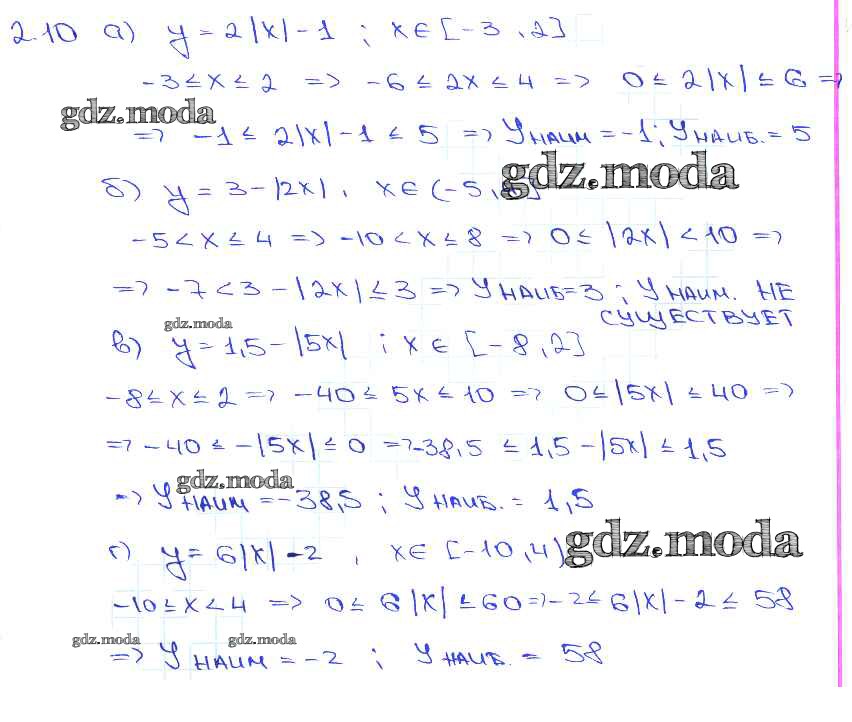 2.10 а) y = 2|x| - 1 ; x ∈ [-3 , 2]
-3 ≤ x ≤ 2 => -6 ≤ 2x ≤ 4 => 0 ≤ 2|x| ≤ 6 =>
gdz.moda
=> -1 ≤ 2|x| - 1 ≤ 5 => y наим = -1; y наиб. = 5
gdz.moda
б) y = 3 - |2x| , x ∈ (-5 ,
-5 < x ≤ 4 => -10 < x ≤ 8 => 0 ≤ |2x| < 10 =>
=> -7 < 3 - |2x| ≤ 3 => y наиб = 3 ; y наим. не
существует
gdz.moda
в) y = 1,5 - |5x| ; x ∈ [-8 , 2]
-8 ≤ x ≤ 2 => -40 ≤ 5x ≤ 10 => 0 ≤ |5x| ≤ 40 =>
=> -40 ≤ -|5x| ≤ 0 => -38,5 ≤ 1,5 - |5x| ≤ 1,5
gdz.moda
=> y наим = -38,5 ; y наиб. = 1,5
г) y = 6|x| - 2 , x ∈ [-10 , 4)
gdz.moda
-10 ≤ x < 4 => 0 ≤ 6|x| ≤ 60 => -2 ≤ 6|x| - 2 ≤ 58
gdz.moda gdz.moda
=> y наим = -2 ; y наиб. = 58